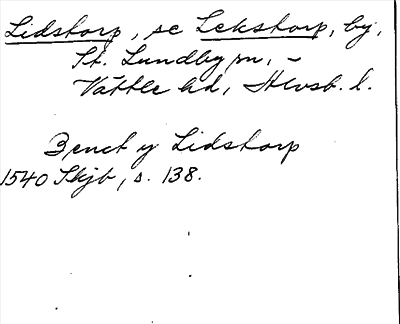 Lidstorp, se Lekstorp, by,
St. Lundby sn, –
Vättle hd, Älvsb. l.
Benct y Lidstorp
1540 Skjb, s. 138.